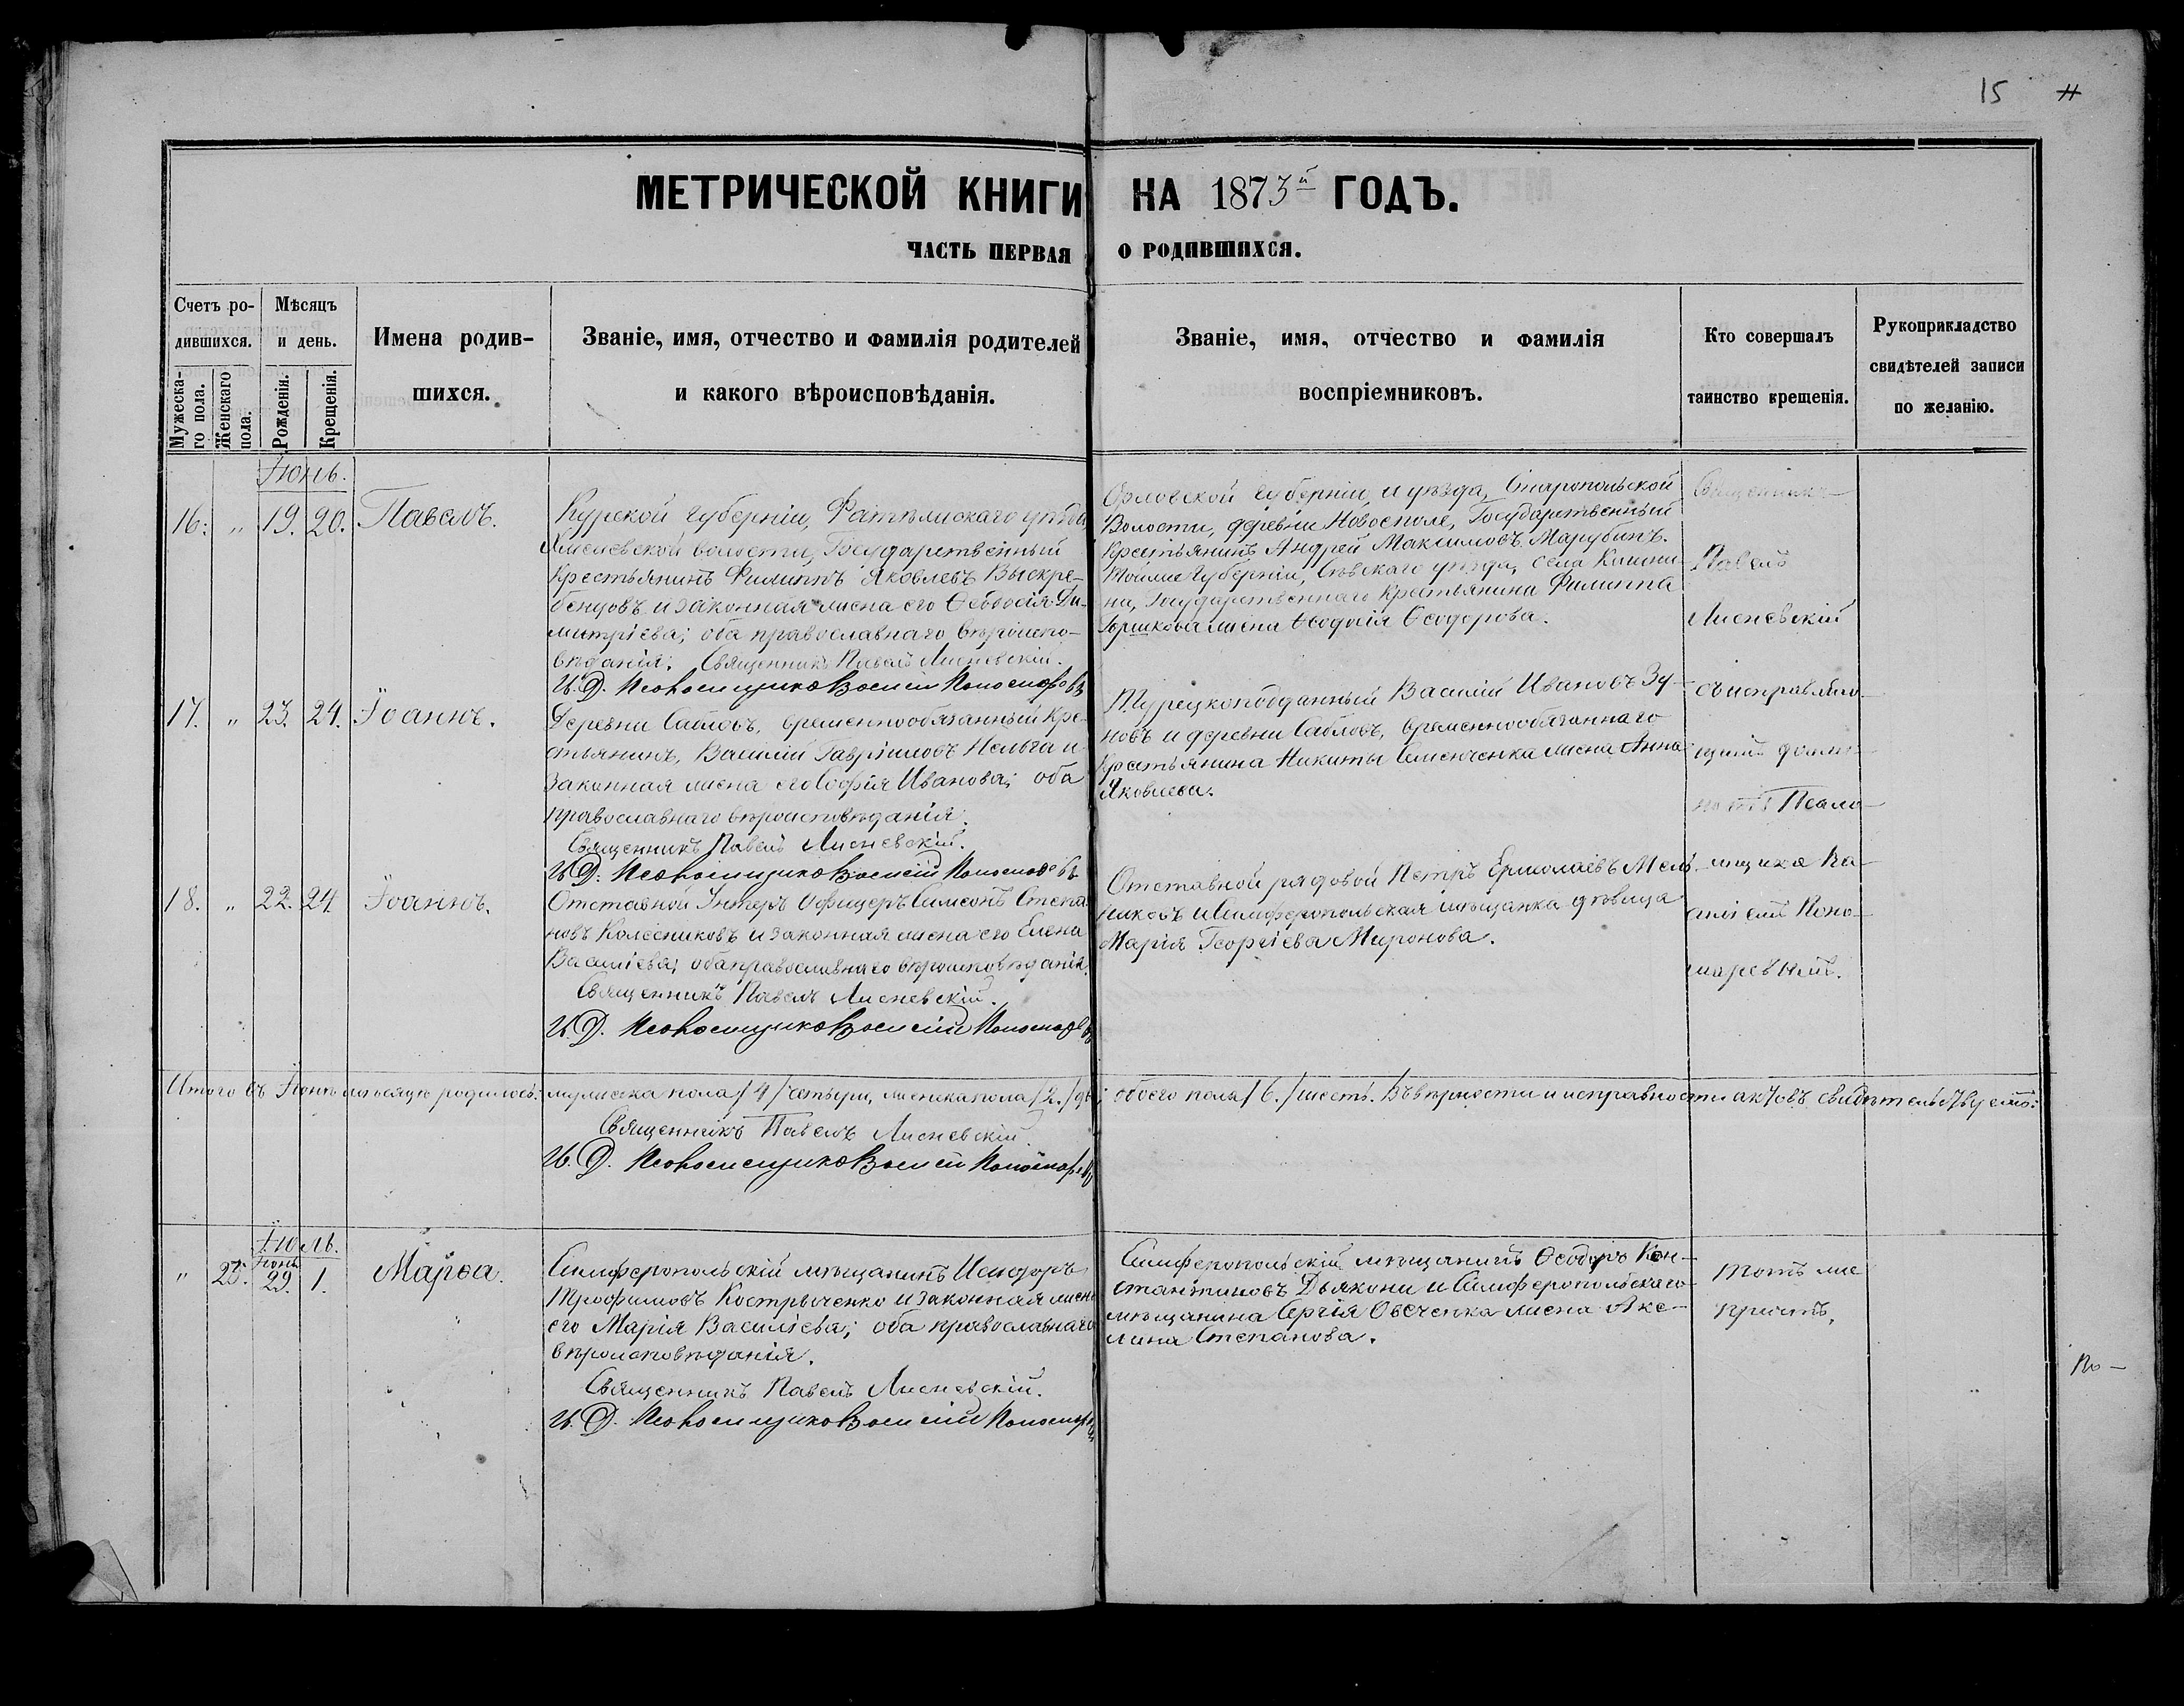 15
МЕТРИЧЕСКОЙ КНИГИ НА 1873й ГОДЪ.
ЧАСТЬ ПЕРВАЯ О РОДИВШИХСЯ.
Счетъ ро-
дившихся.
Мужеска-
го пола.
Женскаго
пола.
Мѣсяцъ
и день.
Рожденія.
Крещенія.
Имена родив-
шихся.
Званіе, имя, отчество и фамилія родителей
и какого вѣроисповѣданія.
Званіе, имя, отчество и фамилія
воспріемниковъ.
Кто совершалъ
таинство крещенія.
Рукоприкладство
свидѣтелей записи
по желанію.
Іюнь.
16. " 19. 20. Павелъ.
Курской губерніи, уѣзда
волости, Государственный
Крестьянинъ Филиппъ Яковлевъ Выскре-
бенцовъ и законная жена его Ѳеодосія Ди-
митріева; оба православнаго вѣроиспо-
вѣданія. Священникъ Павелъ Лисневскій.
И. Д. Псаломщика Василій Пономаревъ
Орловской губерніи, и уѣзда,
Волости, деревни Государственный
Крестьянинъ Андрей Максимовъ Марубинъ.
Той же губерніи, Сѣвскаго уѣзда, села
Государственнаго Крестьянина Филиппа
Горшкова жена Ѳеодосія Ѳеодорова.
Священникъ
Павелъ
Лисневскій
съ исправляю-
щимъ долж-
ность Псало-
мщика Ва-
силіемъ Поно-
маревымъ.
17. " 23. 24. Іоаннъ.
Деревни Сабловъ, временнообязанный Кре-
стьянинъ, Василій Гавріиловъ и
законная жена его Софія Иванова; оба
православнаго вѣроисповѣданія.
Священникъ Павелъ Лисневскій.
И. Д. Псаломщика Василій Пономаревъ
Турецкоподданный Василій Ивановъ Зу-
новъ и деревни Сабловъ, временнообязаннаго
Крестьянина Никиты Семенченка жена Анна
Яковлева.
18. " 22. 24. Іоаннъ.
Отставной Унтеръ Офицеръ Симеонъ Степа-
новъ Колесниковъ и законная жена его Елена
Василіева; оба православнаго вѣроисповѣданія.
Священникъ Павелъ Лисневскій.
И. Д. Псаломщика Василій Пономаревъ
Отставной рядовой Петръ Ермолаевъ Мель-
никовъ и Симферопольская мѣщанка дѣвица
Марія Георгіева Миронова.
Итого въ Іюнѣ мѣсяцѣ родилось: мужеска пола /4/ четыри, женска пола /2./ двѣ; обоего пола /6./ шесть. Въ вѣрности и исправности актовъ свидѣтельствуемъ:
Священникъ Павелъ Лисневскій.
И. Д. Псаломщика Василій Пономаревъ
Іюль.
Іюнь
" 25. 29. 1. Марѳа.
Симферопольскій мѣщанинъ Исидоръ
Трофимовъ Костыченко и законная жена
его Марія Василіева; оба православнаго
вѣроисповѣданія.
Священникъ Павелъ Лисневскій.
И. Д. Псаломщика Василій Пономаревъ
Симферопольскій мѣщанинъ Ѳеодоръ Кон-
стантиновъ Дьякони и Симферопольскаго
мѣщанина Сергія Овеченка жена Аке-
лина Степанова.
Тотъ же
причтъ.
По-